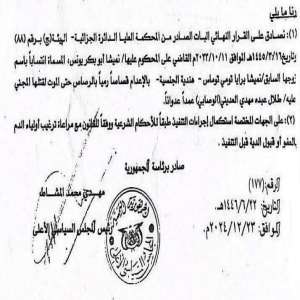 رنا ما يلي
(١) نصادق على القرار النهائي البات الصادر من المحكمة العليا الدائرة الجزائية- الهيئة(ج) برقم (٨٨)
وتاريخ ١٤٤٥/٣/٢٦هـ الموافق ٢٠٢٣/١٠/١١م القاضي على المحكوم عليها/ نميشا ابو بكر يونس، المسماه انتساباً بأسم
زوجها السابق/نميشا برايا تومي توماس - هندية الجنسية- بالإعدام قصاصاً رمياً بالرصاص حتى الموت لقتلها المجني
عليه/ طلال عبده مهدي (الوصابي) عمداً عدواناً.
(٢) على الجهات المختصة استكمال إجراءات التنفيذ طبقاً للأحكام الشرعية ووفقاً للقانون مع مراعاة ترغيب أولياء الدم
العفو أو قبول الدية قبل التنفيذ.
صادر برئاسة الجمهورية
الرقم: (١٧٧)
مهدي محمد المشاط
التاريخ: ١٤٤٦/٦/٢٢هـ
رئيس المجلس السياسي الأعلى
الموافق: ٢٠٢٤/١٢/٢٣م